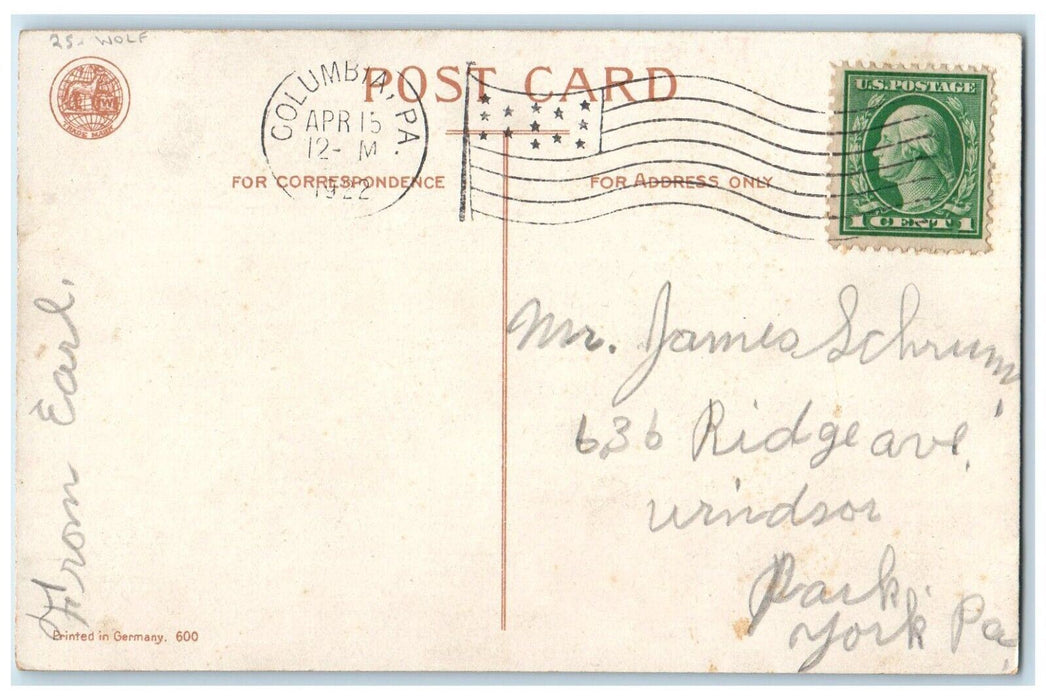 25- WOLF
TRADE MARK
POST CARD
COLUMBIA, PA.
APR 15
12- M
1922
U.S. POSTAGE
1 CENT 1
FOR CORRESPONDENCE
FOR ADDRESS ONLY
From Earl.
Mr. James Schrum
636 Ridge ave,
Windsor
Park.
York Pa,
Printed in Germany. 600